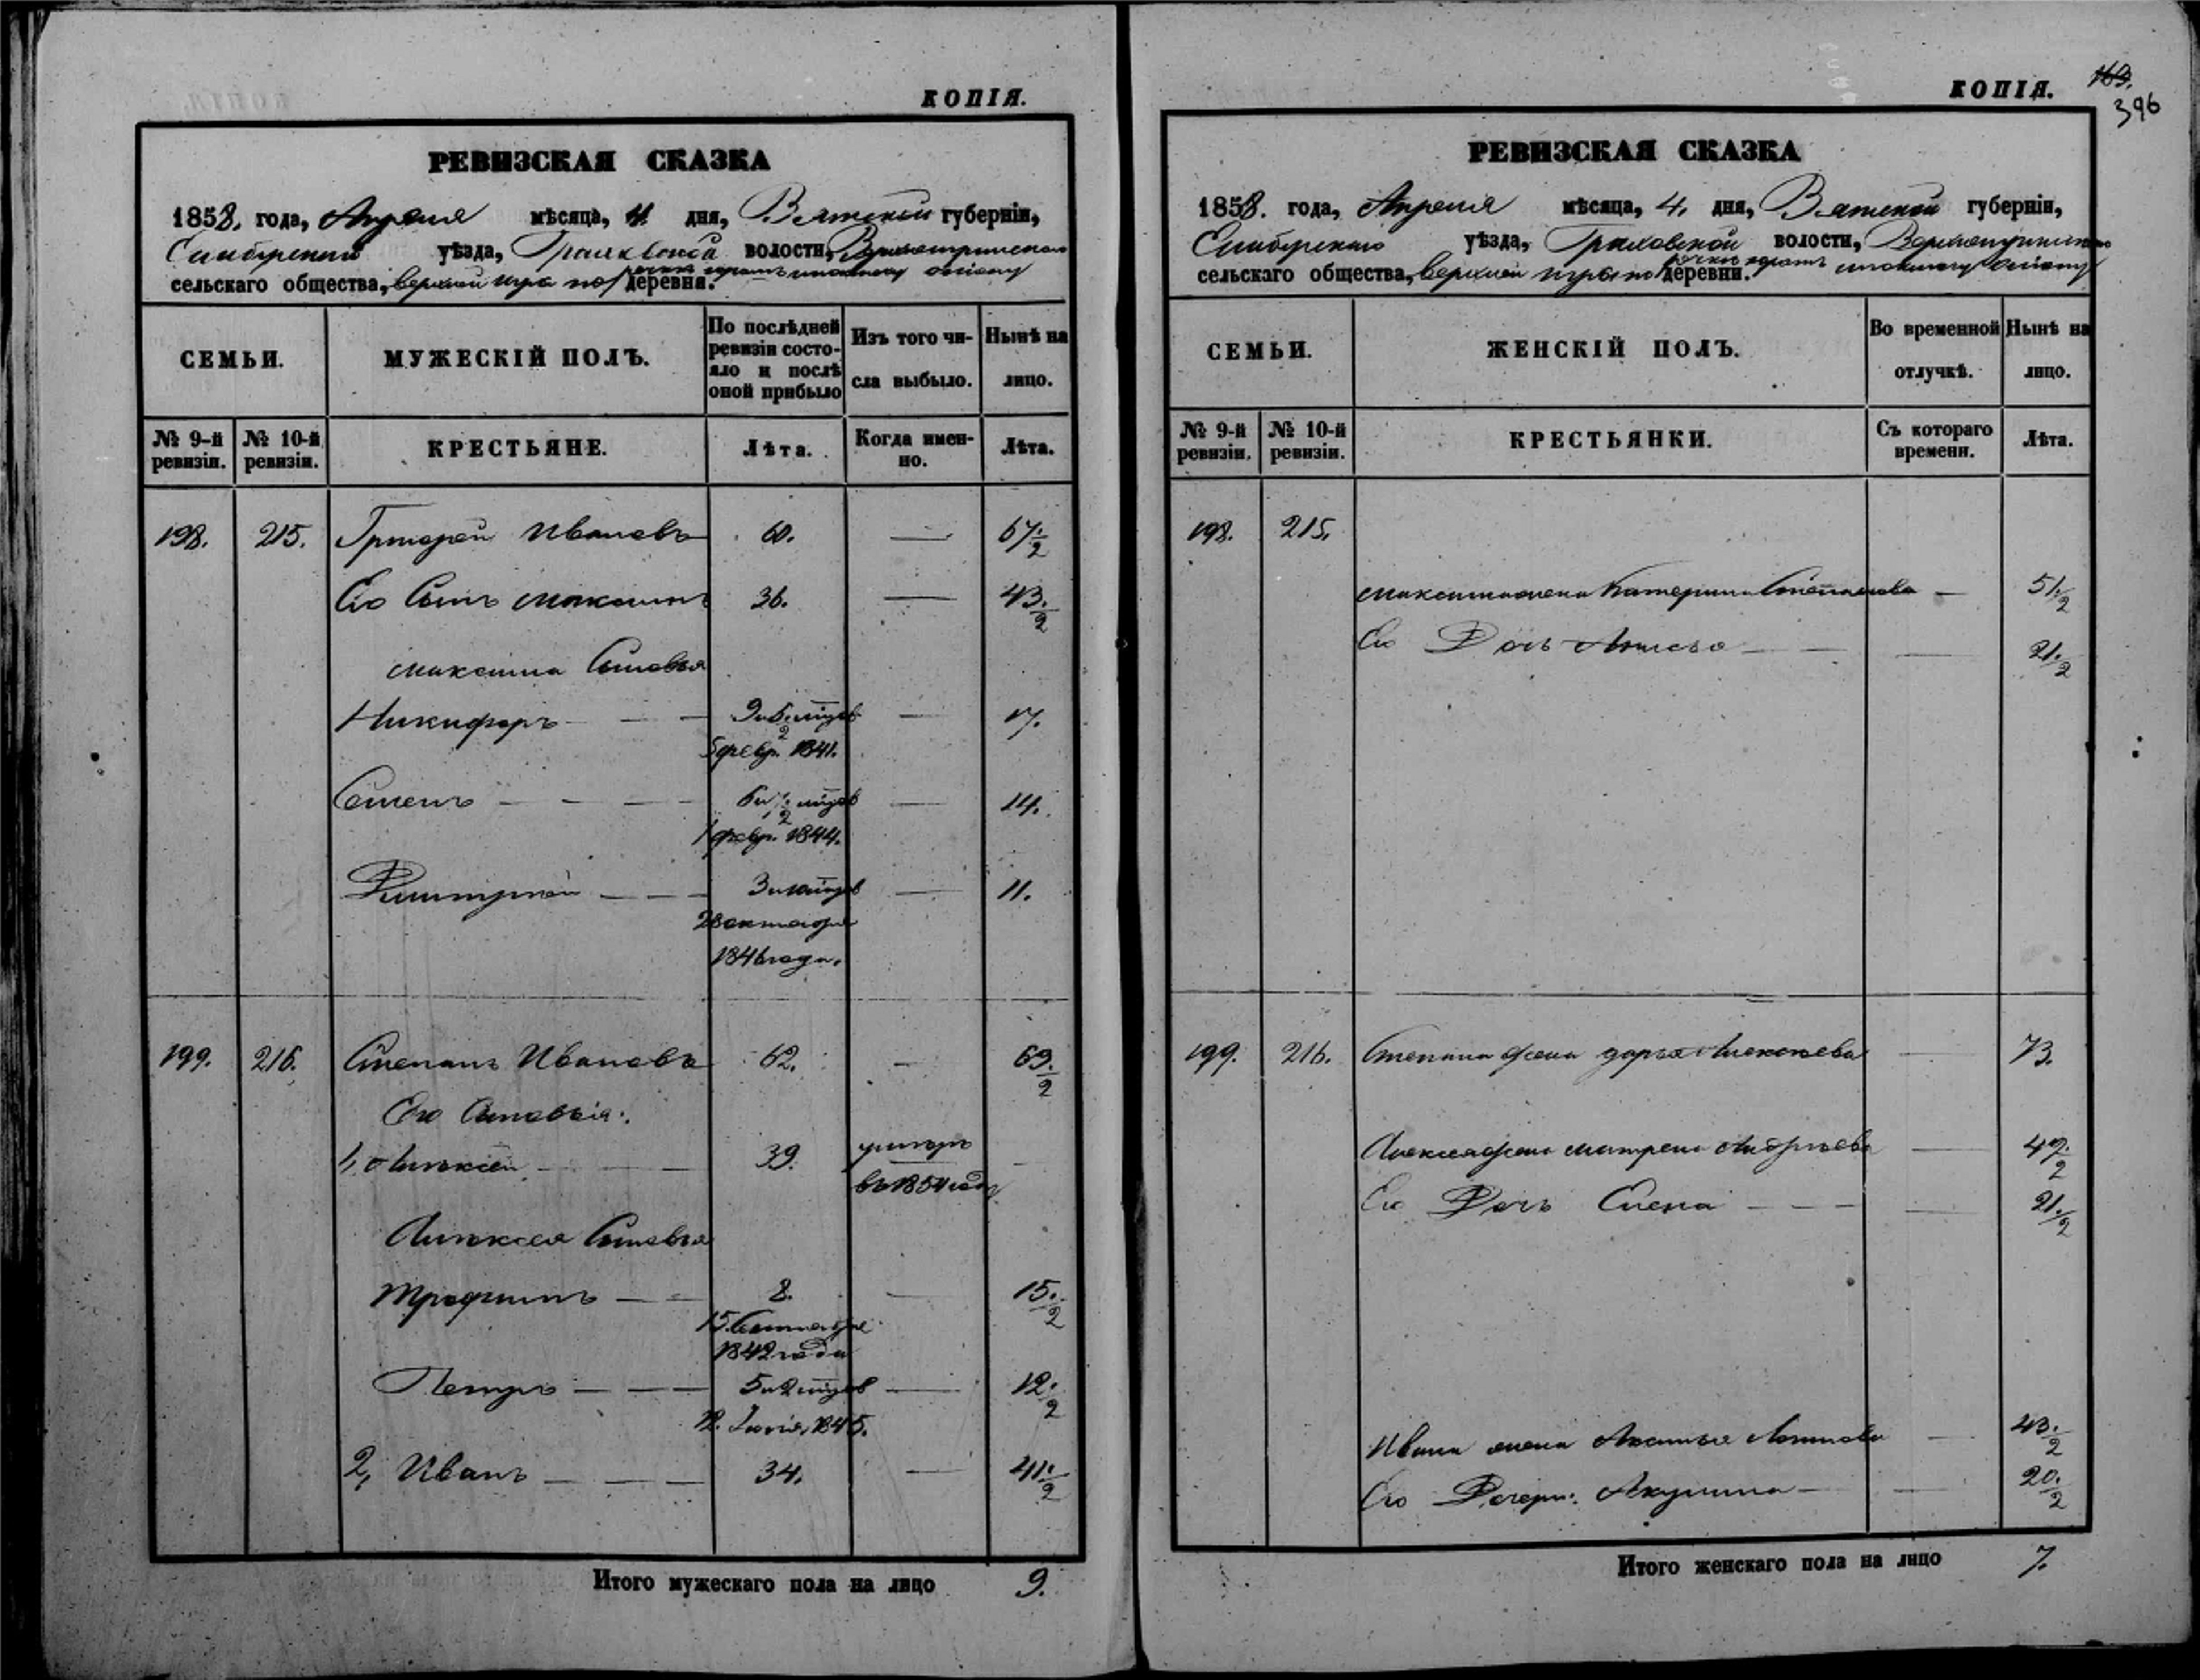 КОПІЯ.
РЕВИЗСКАЯ СКАЗКА
1858. года, Апреля мѣсяца, 4. дня, Вятской губерніи,
уѣзда, волости,
сельскаго общества, верхней деревни.
СЕМЬИ.
МУЖЕСКІЙ ПОЛЪ.
По послѣдней ревизіи состояло и послѣ оной прибыло
Изъ того числа выбыло.
Нынѣ на лицо.
№ 9-й ревизіи.
№ 10-й ревизіи.
КРЕСТЬЯНЕ.
Лѣта.
Когда именно.
Лѣта.
198. 215. Григорей Ивановъ 60. — 67./2
Его Сынъ Максимъ 36. — 43./2
Максима Сыновья
Никифоръ — — — 17.
5 февр. 1841.
Семенъ — — — — 14.
1 февр. 1844.
Дмитрией — — — 11.
28 октября
1846 года.
199. 216. Степанъ Ивановъ 62. — 69./2
Его Сыновья:
1, Алексей — — 39. умеръ —
въ 1854 году
Алексея Сыновья
Трофимъ — — 8. — 15./2
15. Сентября
1842 года
Петръ — — — 5 и 2 мцов — 12./2
1845.
2, Иванъ — — — 34. — 41./2
Итого мужескаго пола на лицо 9.
КОПІЯ. 163.
396
РЕВИЗСКАЯ СКАЗКА
1858. года, Апреля мѣсяца, 4. дня, Вятской губерніи,
уѣзда, волости,
сельскаго общества, верхней деревни.
СЕМЬИ.
ЖЕНСКІЙ ПОЛЪ.
Во временной отлучкѣ.
Нынѣ на лицо.
№ 9-й ревизіи.
№ 10-й ревизіи.
КРЕСТЬЯНКИ.
Съ котораго времени.
Лѣта.
198. 215.
Максима жена Катерина Степанова — 51./2
Его Дочь — — 21./2
199. 216. Степана жена дарья Алексеева — 73.
Алексея жена матрена Андреева — 47./2
Его Дочь Елена — — — 21./2
Ивана жена — 43./2
Его Дочери: Акулина — — 20./2
Итого женскаго пола на лицо 7.